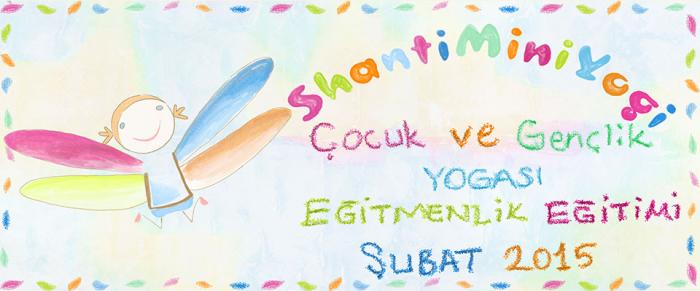 ShantiMiniYogi
Çocuk ve Gençlik
YOGASI
EĞİTMENLİK EĞİTİMİ
ŞUBAT 2015